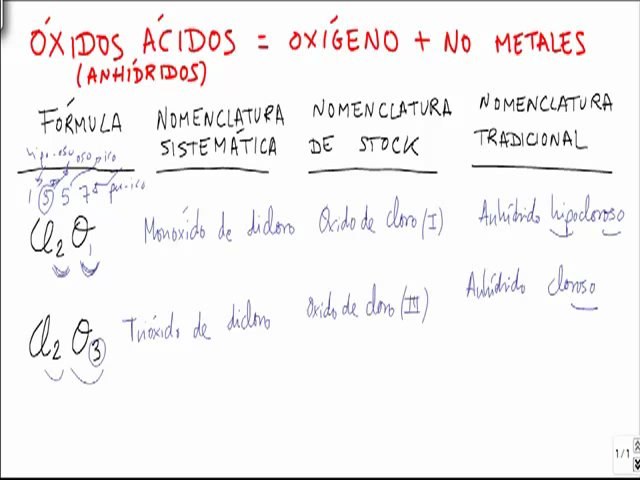 ÓXIDOS ÁCIDOS = OXÍGENO + NO METALES
(ANHÍDRIDOS)
FÓRMULA
NOMENCLATURA SISTEMÁTICA
NOMENCLATURA DE STOCK
NOMENCLATURA TRADICIONAL
hipo-oso oso ico
1 3 5 7 per-ico
Cl2O1 Monóxido de dicloro Óxido de cloro (I) Anhídrido hipocloroso
Cl2O3 Trióxido de dicloro Oxido de cloro (III) Anhídrido cloroso
1/1